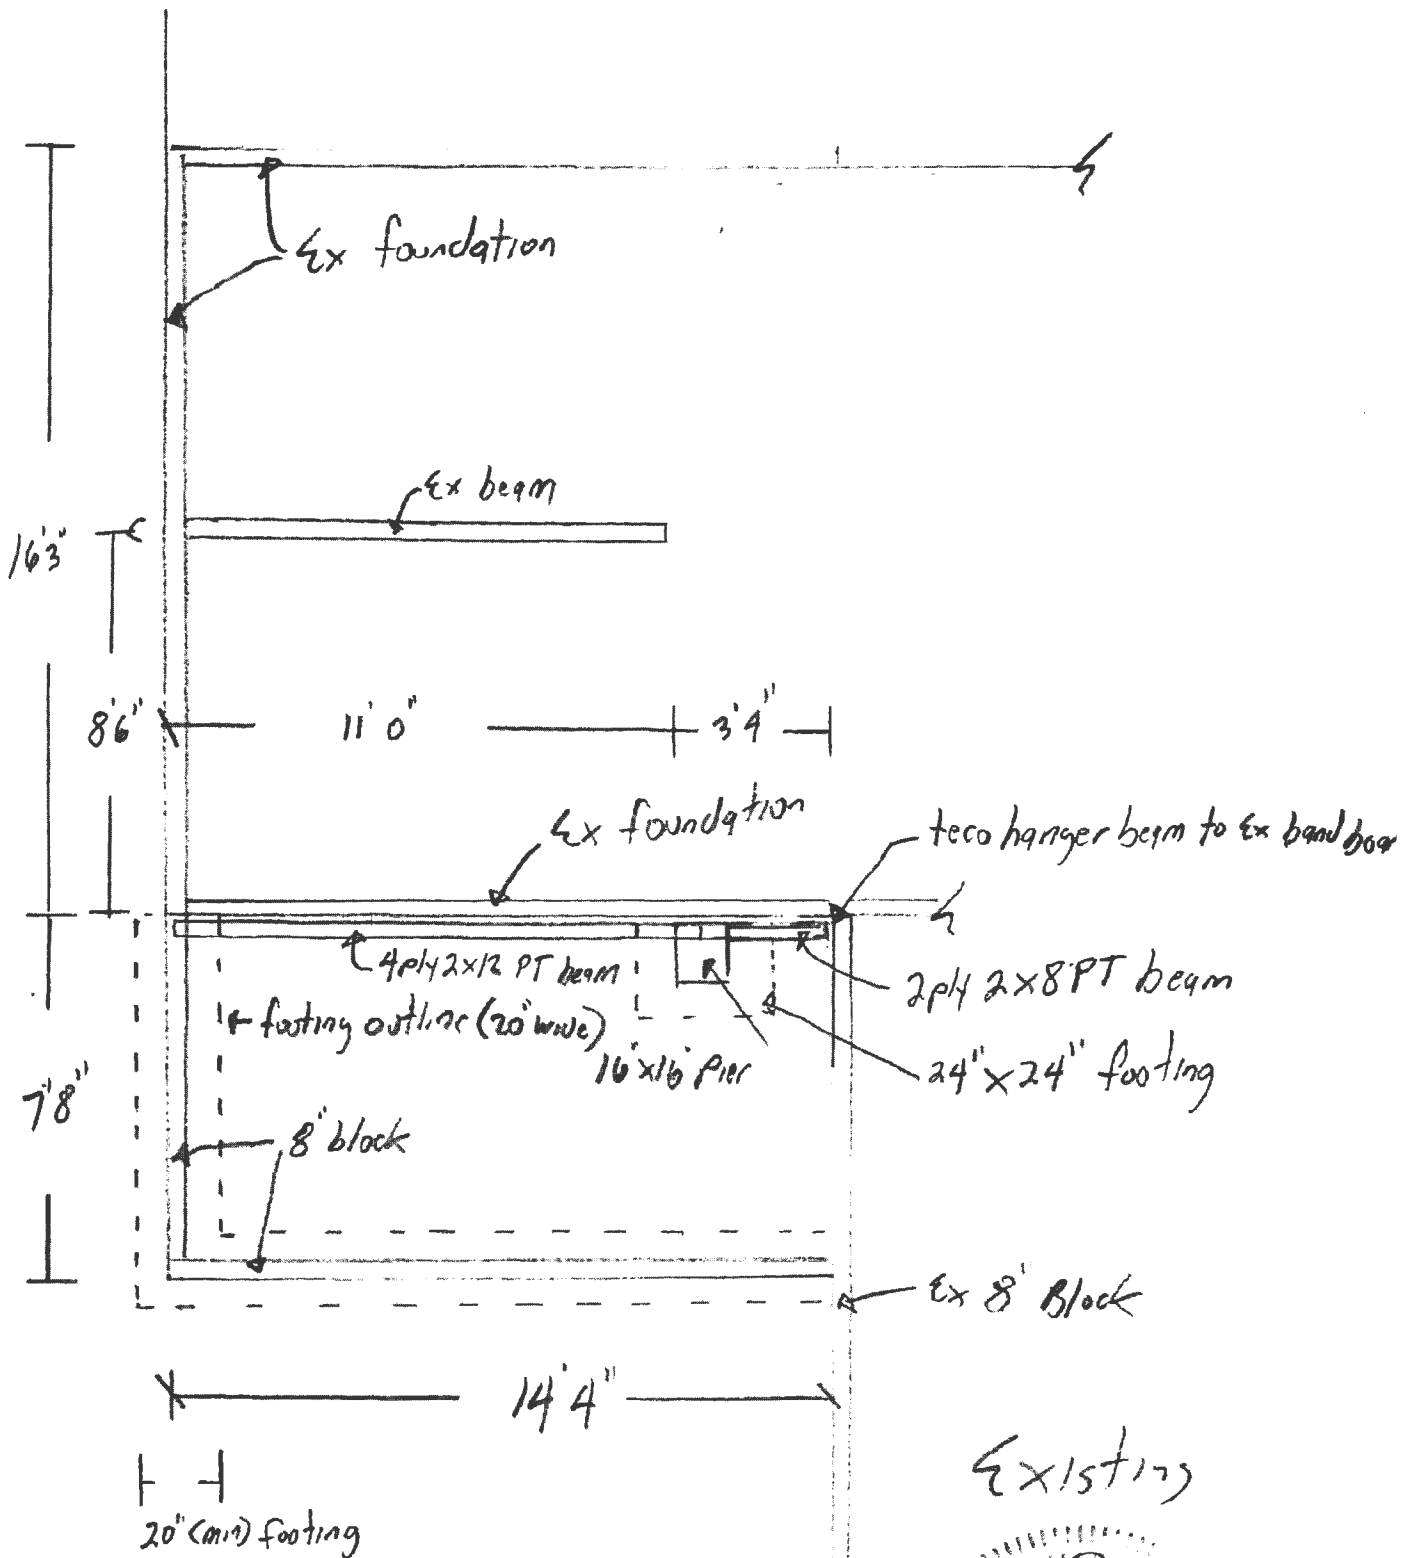 Ex foundation
Ex beam
16'3"
8'6"
11' 0"
3'4"
Ex foundation
teco hanger beam to Ex band boar
4ply 2x12 PT beam
2ply 2x8 PT beam
footing outline (20" wide)
16"x16" pier
24"x24" footing
7'8"
8" block
Ex 8" Block
14'4"
Existing
20" (min) footing